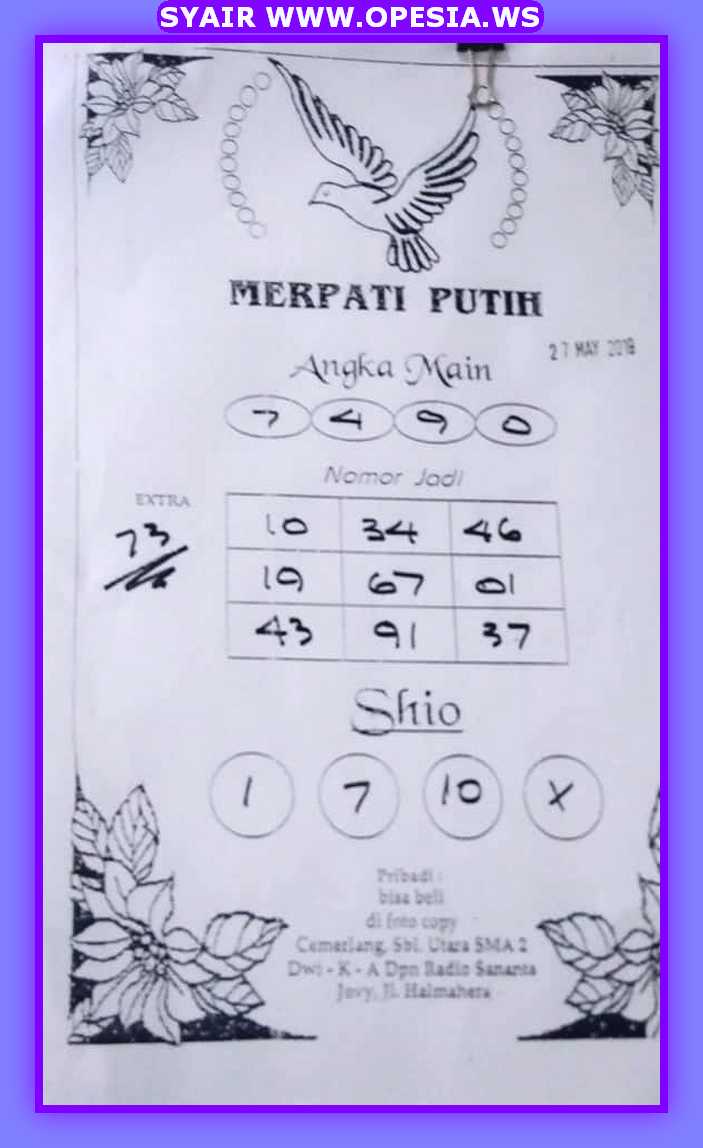 SYAIR WWW.OPESIA.WS
MERPATI PUTIH
27 MAY 2019
Angka Main
7 4 9 0
Nomor Jadi
EXTRA
73
10 34 46
19 67 01
43 91 37
Shio
1 7 10 X
Pribadi :
bisa beli
di foto copy
Cemerlang, Sbl. Utara SMA 2
Dwi - K - A Dpn Radio Sananta
Jovy, Jl. Halmahera